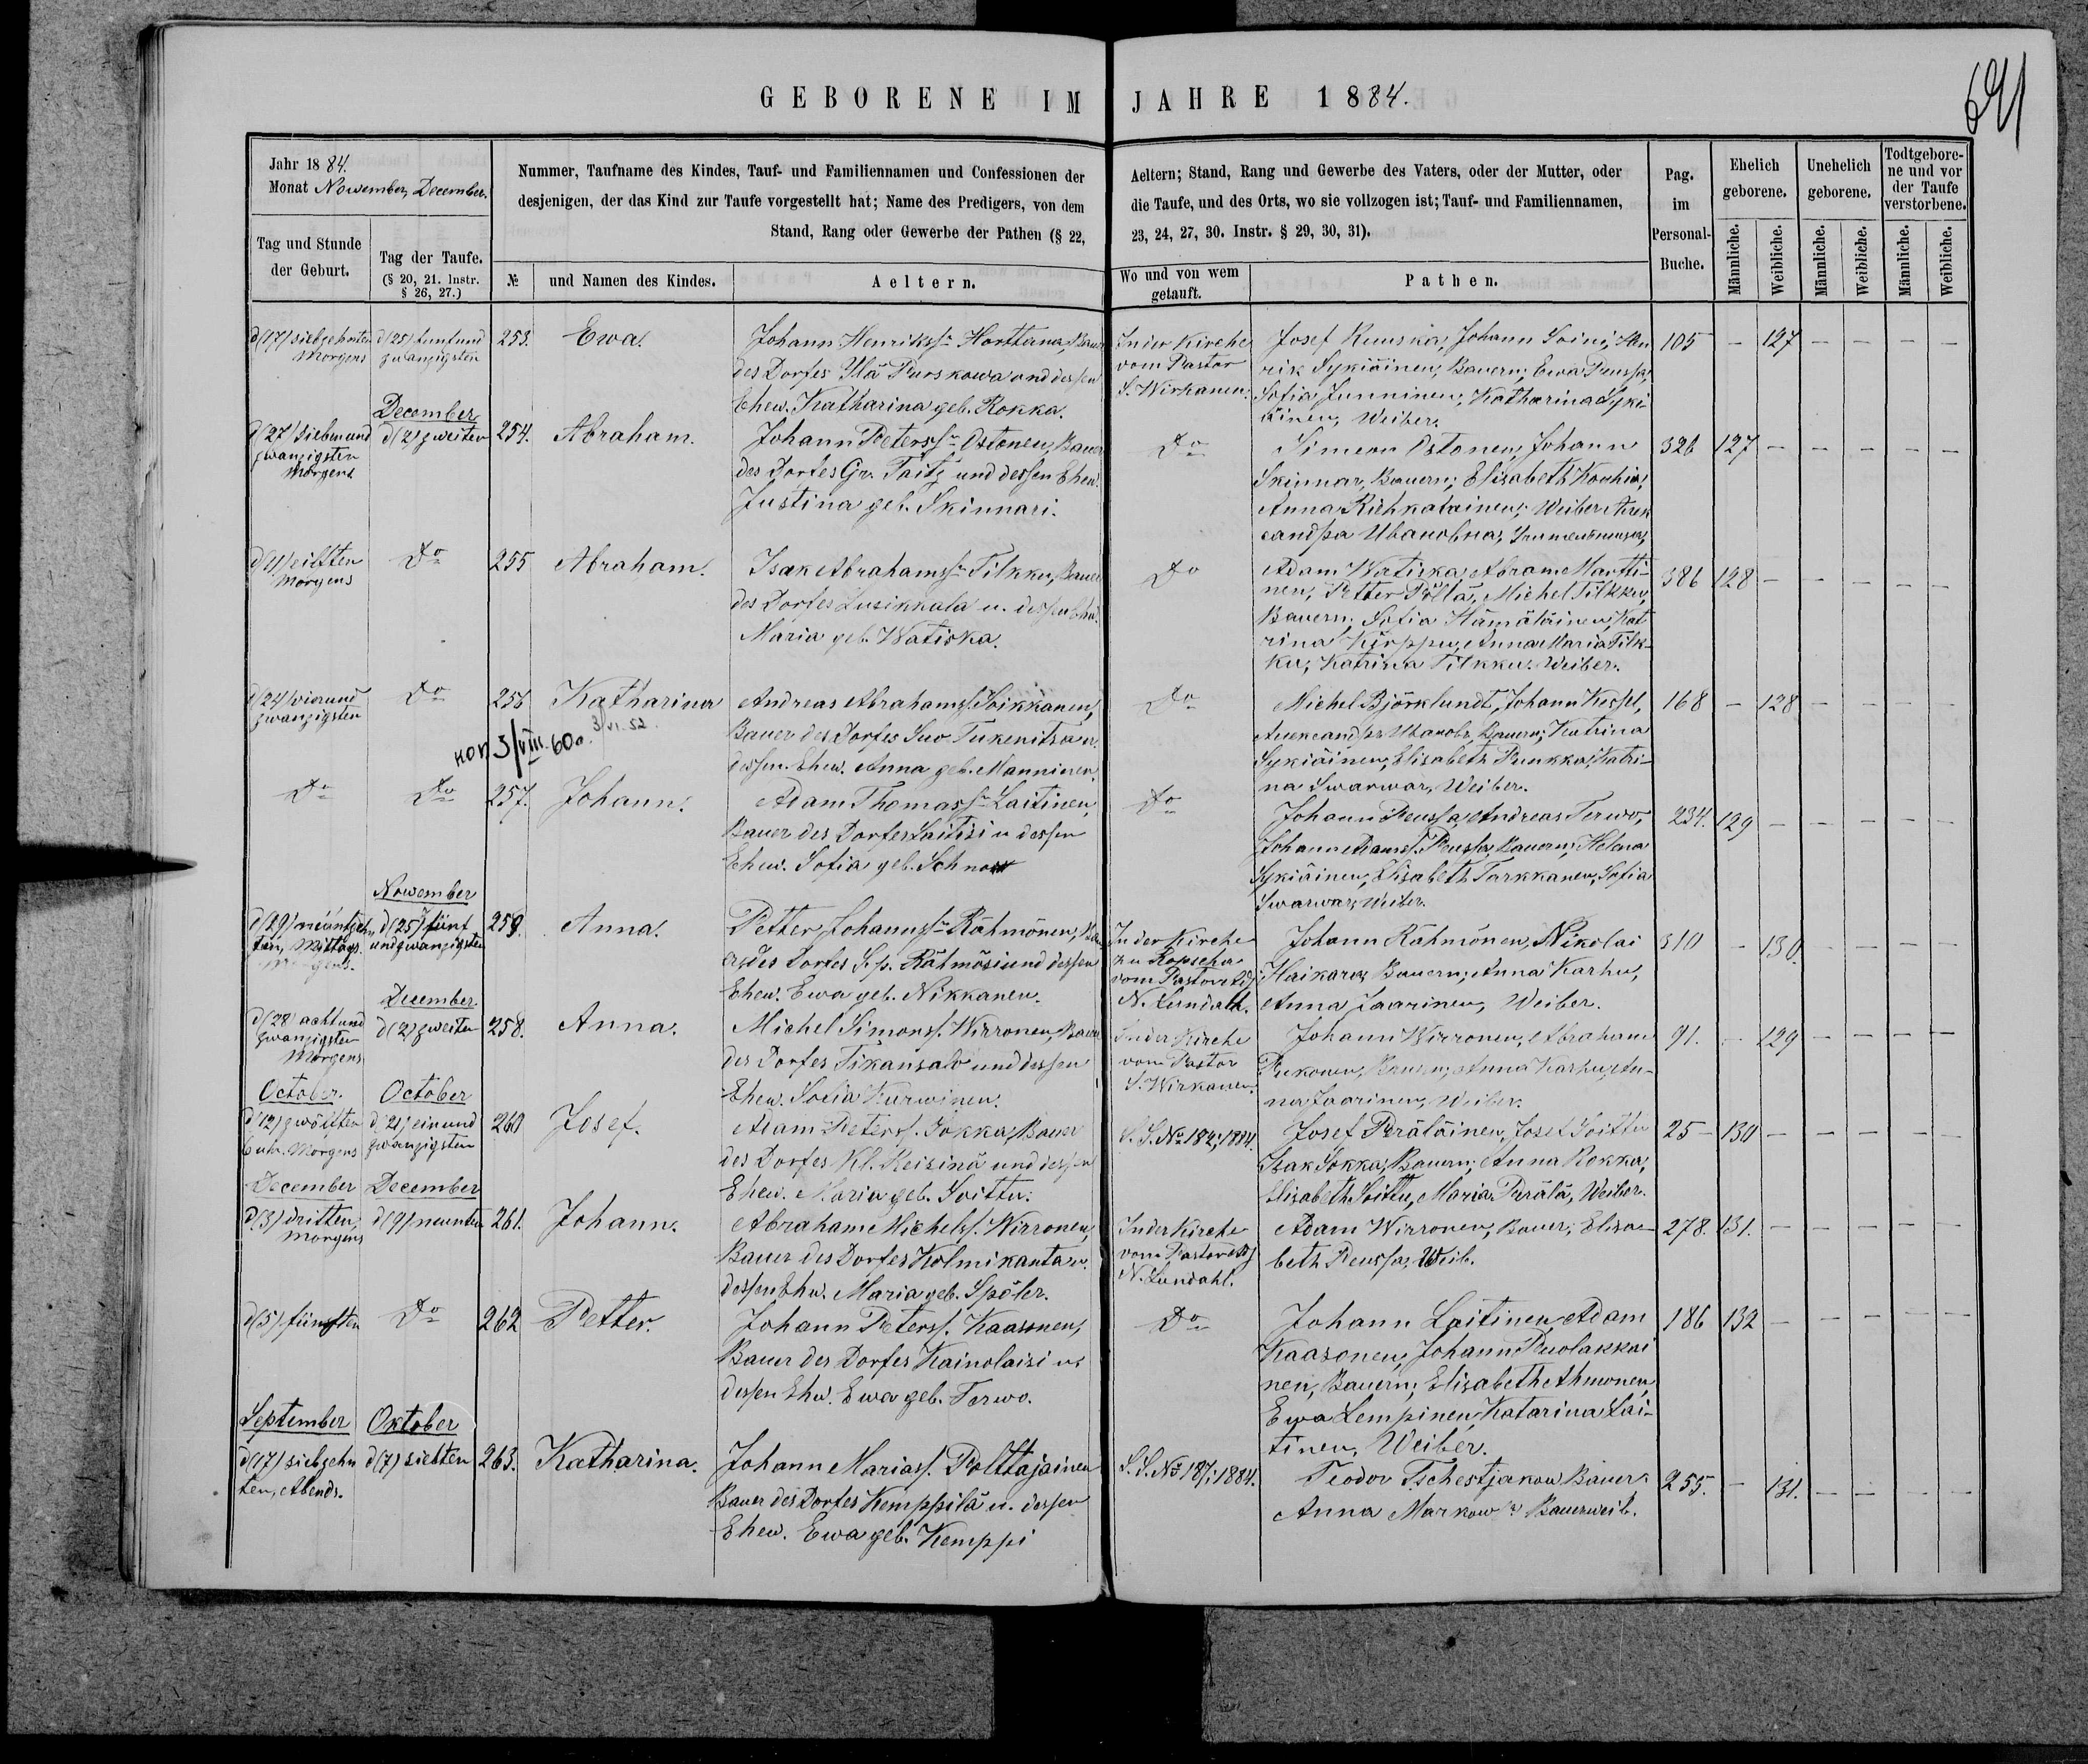 GEBORENE IM JAHRE 1884.
691
Jahr 1884.
Monat Nowember, December.
Nummer, Taufname des Kindes, Tauf- und Familiennamen und Confessionen der
desjenigen, der das Kind zur Taufe vorgestellt hat; Name des Predigers, von dem
Stand, Rang oder Gewerbe der Pathen (§ 22,
Aeltern; Stand, Rang und Gewerbe des Vaters, oder der Mutter, oder
die Taufe, und des Orts, wo sie vollzogen ist; Tauf- und Familiennamen,
23, 24, 27, 30. Instr. § 29, 30, 31).
Pag.
im
Personal-
Buche.
Ehelich
geborene.
Unehelich
geborene.
Todtgebore-
ne und vor
der Taufe
verstorbene.
Tag und Stunde
der Geburt.
Tag der Taufe.
(§ 20, 21. Instr.
§ 26, 27.)
№
und Namen des Kindes.
Aeltern.
Wo und von wem
getauft.
Pathen.
Männliche.
Weibliche.
Männliche.
Weibliche.
Männliche.
Weibliche.
d (17) siebzehnten
Morgens
d (25) funfund
zwanzigsten
253.
Ewa.
Johann Henrikss. Horttana, Bauer
des Dorfes Ylä Purskowa und dessen
Ehew. Katharina geb. Rokka.
In der Kirche
vom Pastor
S. Wirkanen.
Josef Kuuska, Johann Soini, Hen
rik Sykiäinen, Bauern; Ewa Peussa,
Sofia Junninen, Katharina Syki-
äinen, Weiber.
105 – 127 – – – –
d (27) siebenund
zwanzigsten
Morgens
December
d (2) zweiten
254.
Abraham.
Johann Peterss. Ostonen, Bauer
des Dorfes Gr. Taitz und dessen Ehew.
Justina geb. Skinnari.
Do
Simeon Ostonen, Johann
Skinnar, Bauern; Elisabeth
Anna Weiber
326 127 – – – – –
d (11) eilften
Morgens
Do
255
Abraham.
Isak Abrahamss. Tilkku, Bauer
des Dorfes Lusikkala u. dessen Ehew.
Maria geb. Watiska.
Do
Adam Watiska, Abram Martti-
nen, Petter Pöllä, Michel Tilkku,
Bauern; Sofia Hämäläinen, Kat
rina Kirppu, Anna Maria Tilk-
ku, Katrina Tilkku, Weiber.
386 128 – – – – –
d (24) vierund
zwanzigsten
Do
256
Katharina
Andreas Abrahams. Soikkanen,
Bauer des Dorfes Suo Tukenitsa u.
dessen Ehew. Anna geb. Manninen.
коп. 3/VIII. 60 г.
3/VI. 52.
Do
Michel Björklundt, Johann Kessel,
Bauern; Katrina
Sykiäinen, Elisabeth Punkka, Katri-
na Swarwar, Weiber.
168 – 128 – – – –
Do
Do
257.
Johann.
Adam Thomass. Laitinen,
Bauer des Dorfes Saitisi u dessen
Ehew. Sofia geb.
Do
Johann Peussa, Andreas Terwo,
Johann Adams. Peussa, Bauern; Helena
Sykiäinen, Elisabeth Tarkkanen, Sofia
Swarwar, Weiber.
234. 129 – – – – –
d (19) neuntzehn
ten, Mittags.
Nowember
d (25) fünf
undzwanzigsten
259.
Anna.
Petter Johannss. Rähmönen, Bau
er des Dorfes Sp. Rähmösi und dessen
Ehew. Ewa geb. Nikkanen.
In der Kirche
zu Ropscha
vom Pastor Adj
N. Lundahl.
Johann Rähmönen, Nikolai
Haikara, Bauern; Anna Karhu,
Anna Jaarinen, Weiber.
310 – 130. – – – –
d (28) achtund
zwanzigsten
Morgens
December
d (2) zweiten
258.
Anna.
Michel Simons. Wirronen, Bauer
des Dorfes Tikansalo und dessen
Ehew. Sofia Kurwinen.
In der Kirche
vom Pastor
S. Wirkanen.
Johann Wirronen, Abraham
Pukonen, Bauern; Anna Karhu, An-
na Jaarinen, Weiber.
91. – 129 – – – –
October.
d (12) zwölften
6 uhr. Morgens
October
d (21) einund
zwanzigsten
260
Josef.
Adam Peters. Sokka, Bauer
des Dorfes Kl. Reisinä und dessen
Ehew. Maria geb. Soittu.
S. S. № 182, 1884.
Josef Peräläinen, Josef Soittu
Isak Sokka, Bauern; Anna Rokka,
Elisabeth Soittu, Maria Perälä, Weiber.
25 – 130 – – – – –
December
d (3) dritten,
Morgens
December
d (9) neunten
261.
Johann.
Abraham Michels. Wirronen,
Bauer des Dorfes Kolmikanta u.
dessen Ehw. Maria geb. Späler.
In der Kirche
vom Pastor Adj
N. Lundahl.
Adam Wirronen, Bauer; Elisa-
beth Peussa, Weib.
278. 131. – – – – –
d (5) fünften
Do
262
Petter.
Johann Peters. Kaasonen,
Bauer des Dorfes Kainolaisi u.
dessen Ehw. Ewa geb. Terwo.
Do
Johann Laitinen, Adam
Kaasonen, Johann Puolakkai
nen, Bauern; Elisabeth Ahwonen,
Ewa Lempinen, Katarina Lai-
tinen, Weiber.
186 132 – – – – –
September
d (17) siebzehn
ten, Abends.
Oktober
d (7) siebten
263.
Katharina.
Johann Marias. Polttajainen
Bauer des Dorfes Kemppilä u. dessen
Ehew. Ewa geb. Kemppi
S. S. № 187, 1884.
Feodor Tschestjakow Bauer.
Anna Markow Bauerweib.
255. – 131. – – – –